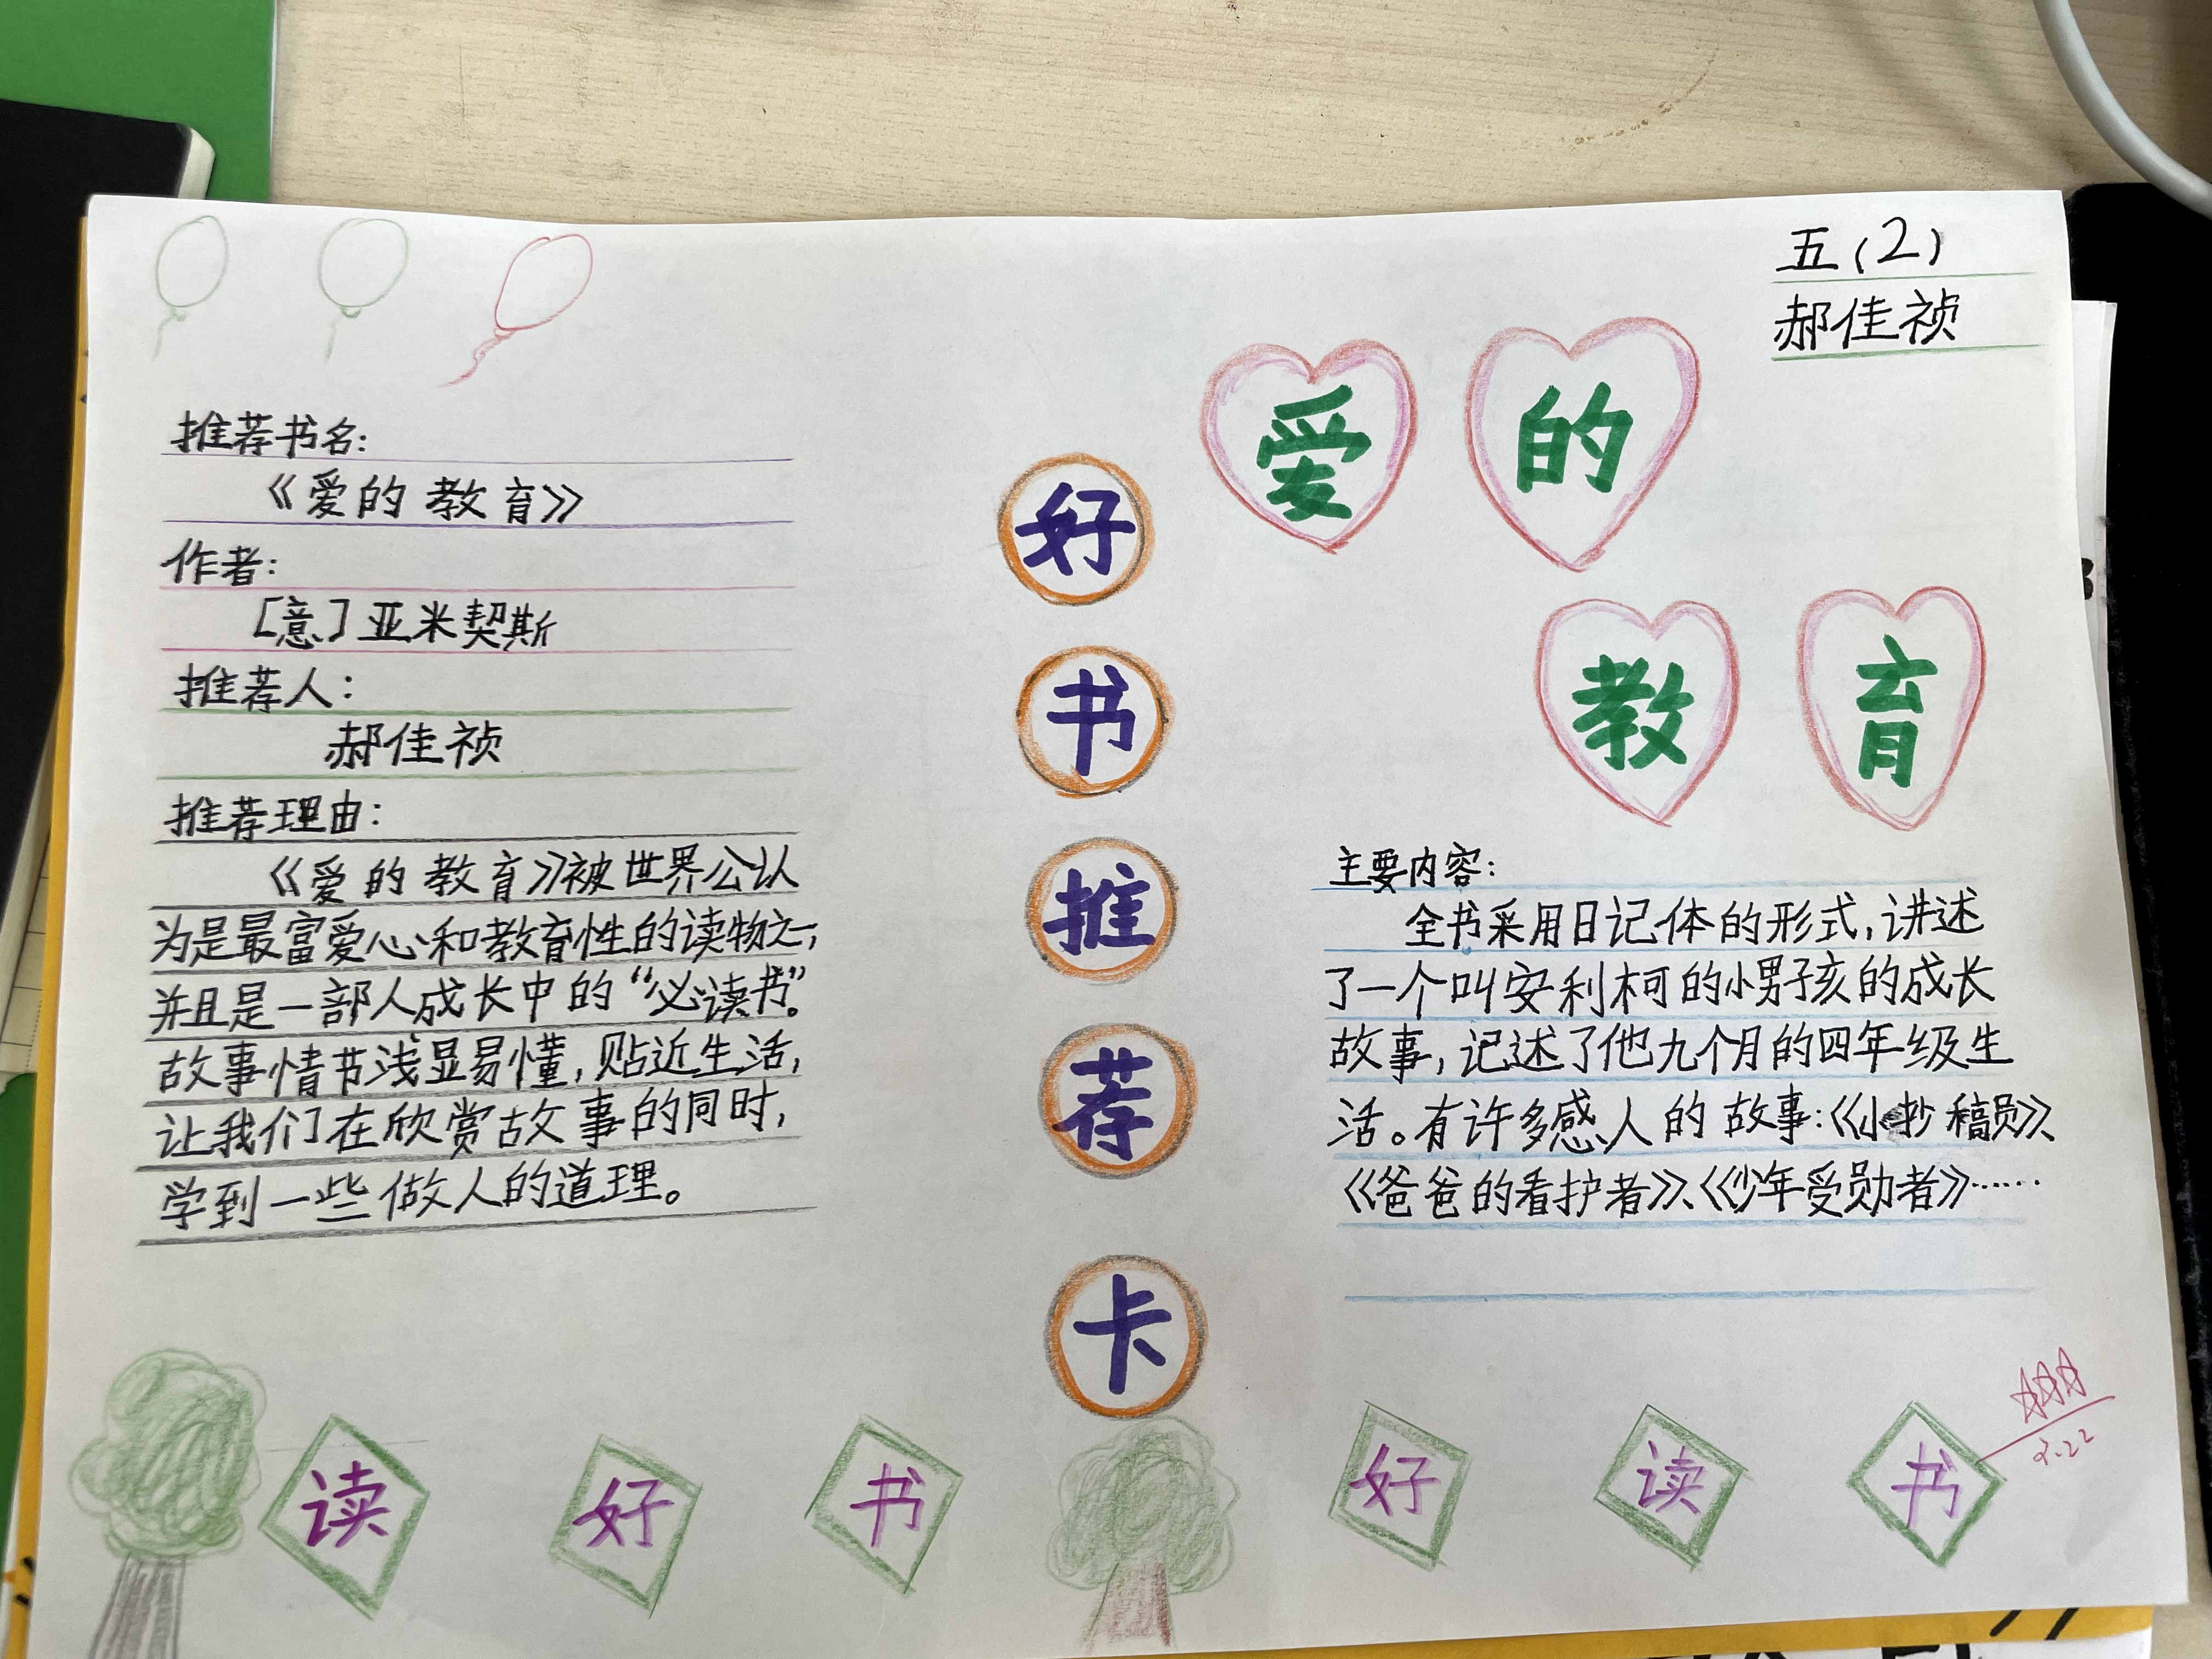 五(2)
郝佳祯
爱的
教育
好书推荐卡
推荐书名:
《爱的教育》
作者:
[意]亚米契斯
推荐人:
郝佳祯
推荐理由:
《爱的教育》被世界公认
为是最富爱心和教育性的读物之一,
并且是一部人成长中的“必读书”。
故事情节浅显易懂,贴近生活,
让我们在欣赏故事的同时,
学到一些做人的道理。
主要内容:
全书采用日记体的形式,讲述
了一个叫安利柯的小男孩的成长
故事,记述了他九个月的四年级生
活。有许多感人的故事:《小抄稿员》、
《爸爸的看护者》、《少年受勋者》……
读好书
好读书